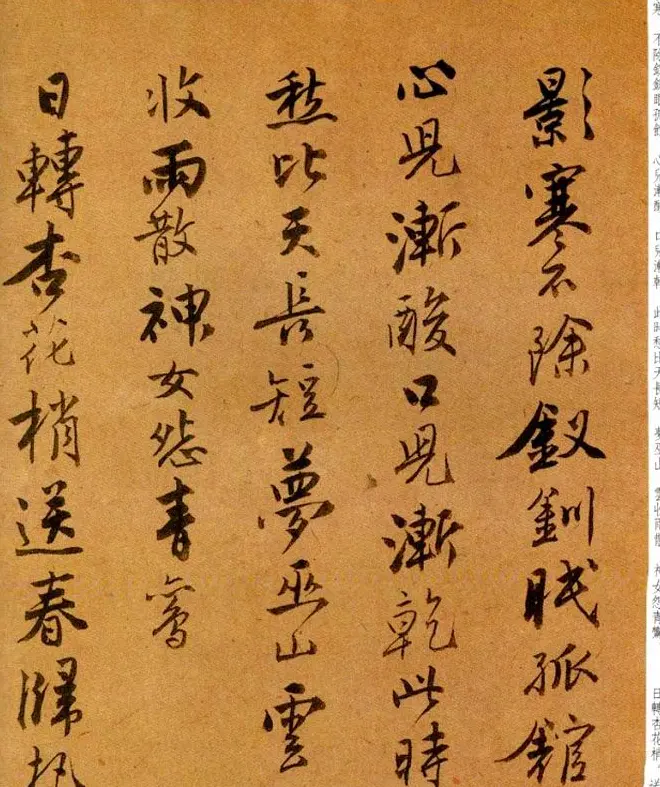 寒 不除釵釧眠孤館 心兒漸酸 口兒漸乾 此時愁比天長短 夢巫山 雲收雨散 神女怨青鸞 日轉杏花梢 送
影寒不除釵釧眠孤館
心兒漸酸口兒漸乾此時
愁比天長短夢巫山雲
收雨散神女怨青鸞
日轉杏花梢送春歸